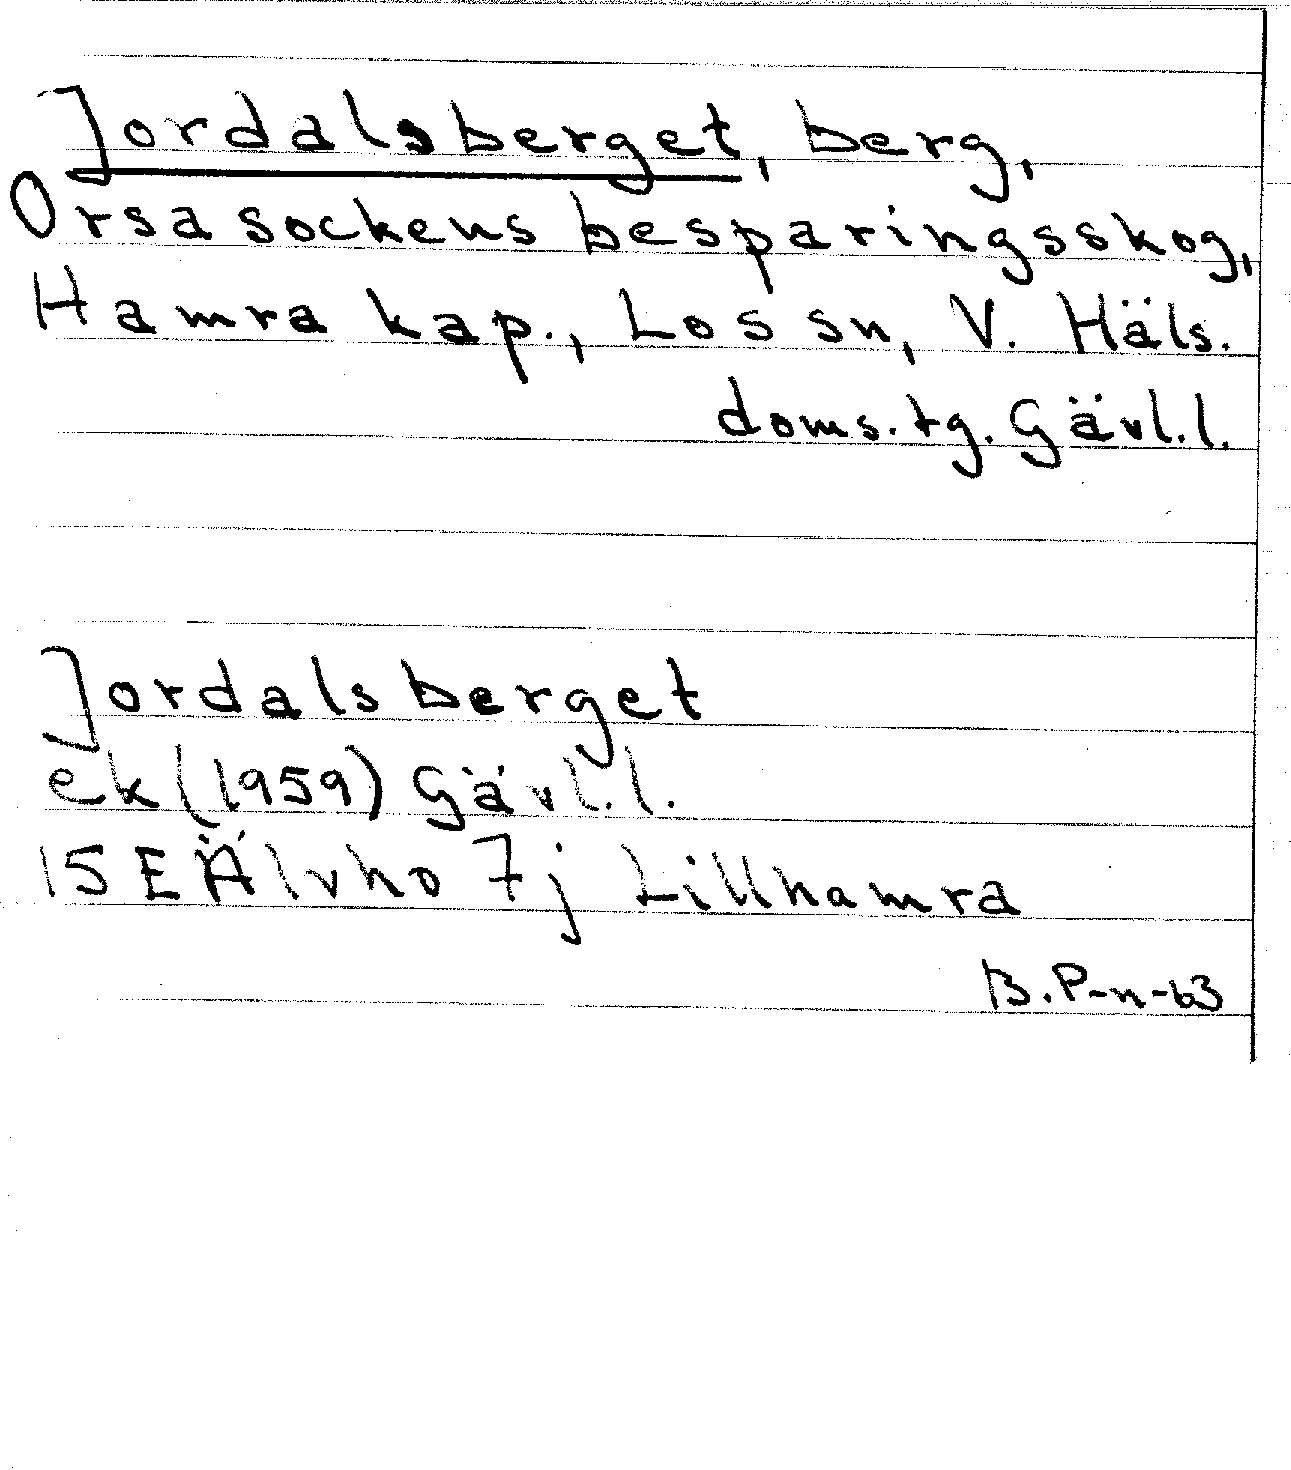 Jordalsberget, berg,
Orsa sockens besparingsskog,
Hamra kap., Los sn, V. Häls.
doms.tg. Gävl.l.
Jordalsberget
ek (1959) Gävl.l.
15 E Älvho 7j Lillhamra
B.P-n-63